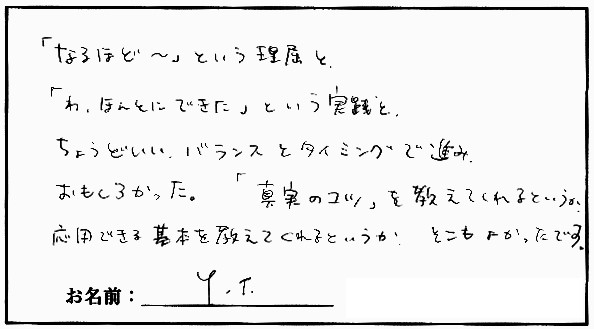 「なるほど～」という理屈と、
「わ、ほんとにできた」という実践と、
ちょうどいい、バランスとタイミングで進み、
おもしろかった。「真実のコツ」を教えてくれるというか、
応用できる基本を教えてくれるというか、そこもよかったです。
お名前：Y.T.